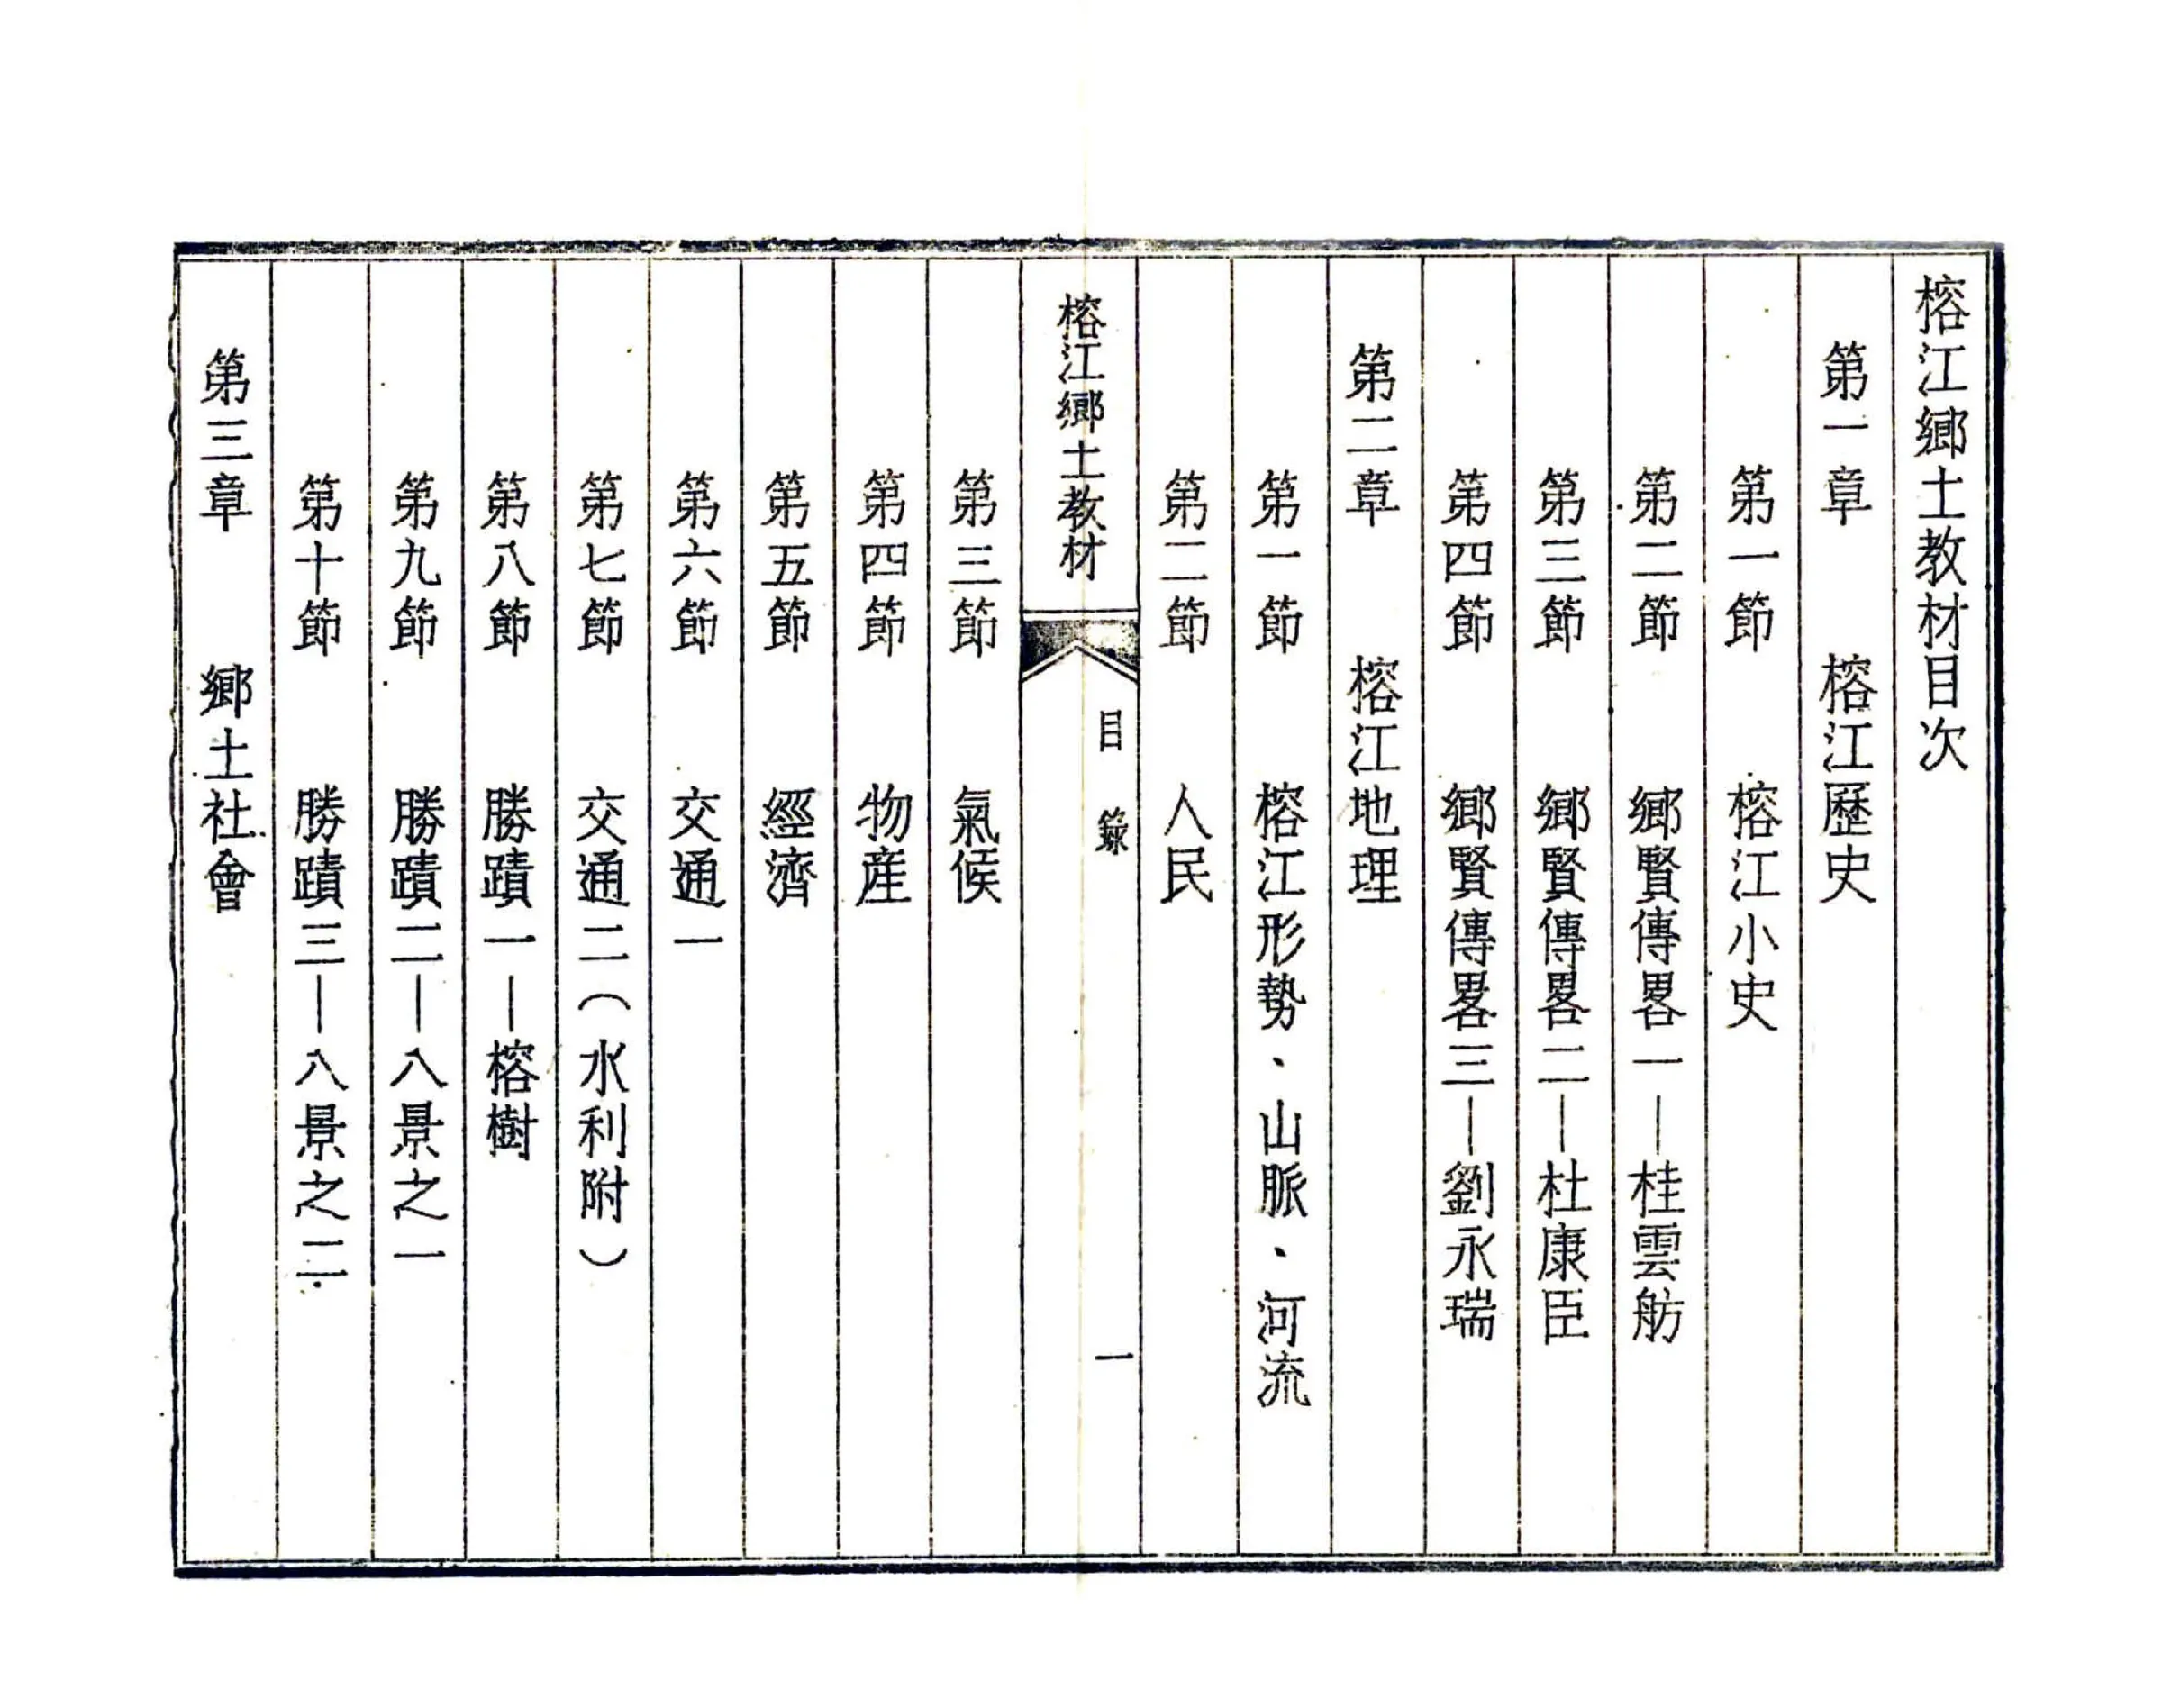 榕江鄉土教材目次
第一章　榕江歷史
第一節　榕江小史
第二節　鄉賢傳畧一—桂雲舫
第三節　鄉賢傳畧二—杜康臣
第四節　鄉賢傳畧三—劉永瑞
第二章　榕江地理
第一節　榕江形勢、山脈、河流
第二節　人民
榕江鄉土教材
目錄
一
第三節　氣候
第四節　物産
第五節　經濟
第六節　交通一
第七節　交通二（水利附）
第八節　勝蹟一—榕樹
第九節　勝蹟二—八景之一
第十節　勝蹟三—八景之二
第三章　鄉土社會